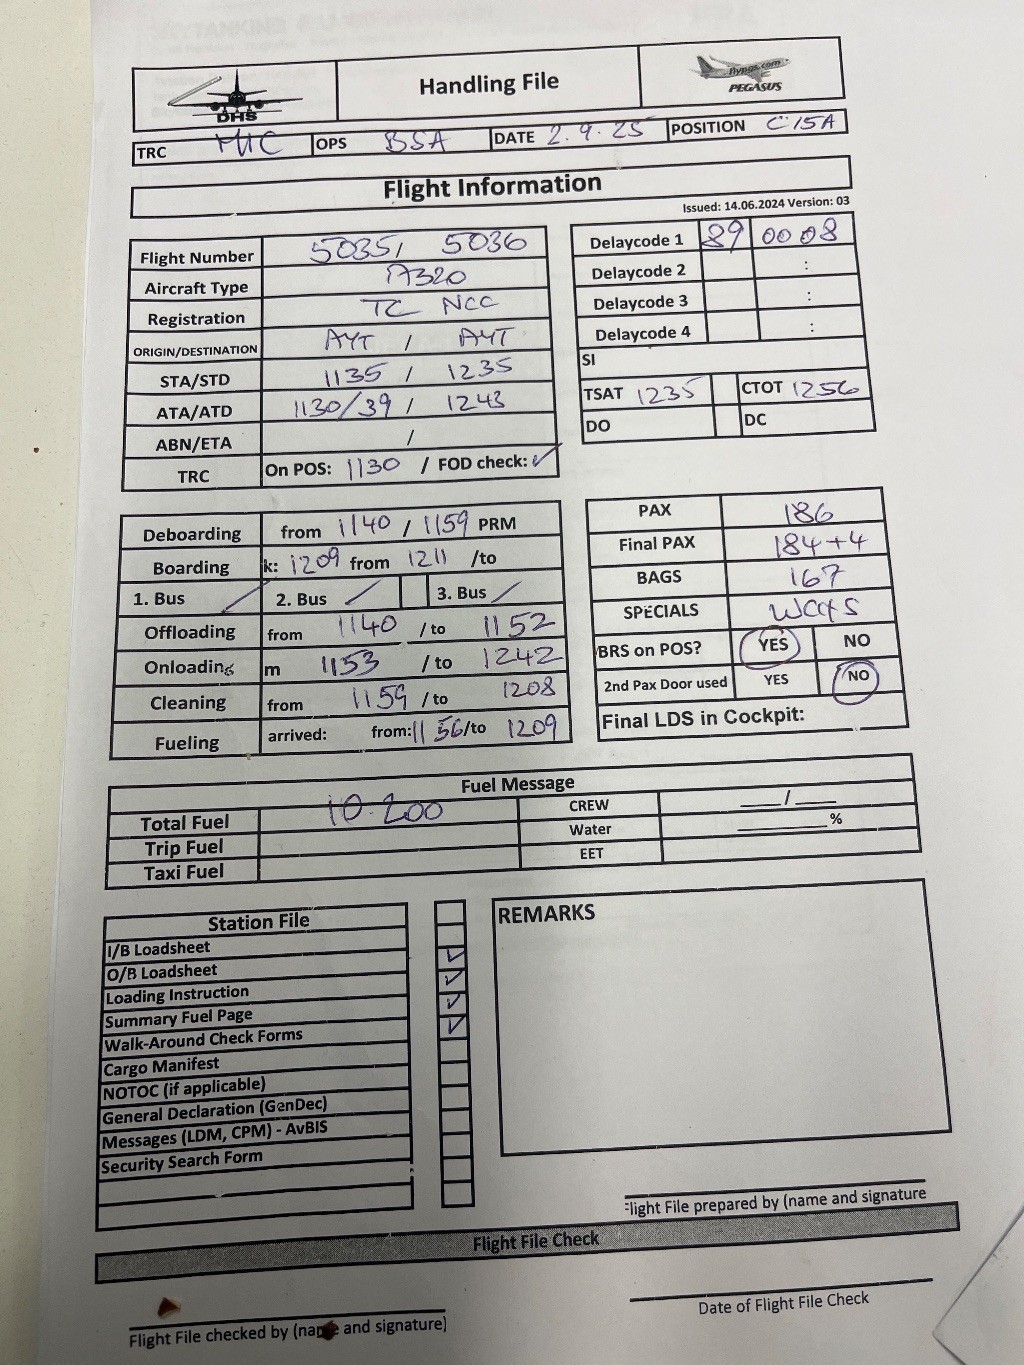 DHS
Handling File
flypgs.com
PEGASUS
TRC MIC OPS BSA DATE 2.9.25 POSITION C15A
Flight Information
Issued: 14.06.2024 Version: 03
Flight Number 5035/ 5036
Aircraft Type A320
Registration TC NCC
ORIGIN/DESTINATION AYT / AYT
STA/STD 1135 / 1235
ATA/ATD 1130/39 / 1243
ABN/ETA /
TRC On POS: 1130 / FOD check: ✓
Delaycode 1 89 00 08
Delaycode 2 :
Delaycode 3 :
Delaycode 4 :
SI
TSAT 1235 CTOT 1256
DO DC
Deboarding from 1140 / 1159 PRM
Boarding k: 1209 from 1211 /to
1. Bus / 2. Bus / 3. Bus /
Offloading from 1140 / to 1152
Onloading m 1153 / to 1242
Cleaning from 1159 / to 1208
Fueling arrived: from: 1156/to 1209
PAX 186
Final PAX 184+4
BAGS 167
SPECIALS
BRS on POS? YES NO
2nd Pax Door used YES NO
Final LDS in Cockpit:
Fuel Message
Total Fuel 10.200 CREW ___/___
Trip Fuel Water ______%
Taxi Fuel EET
Station File
I/B Loadsheet
O/B Loadsheet
Loading Instruction
Summary Fuel Page
Walk-Around Check Forms
Cargo Manifest
NOTOC (if applicable)
General Declaration (GenDec)
Messages (LDM, CPM) - AvBIS
Security Search Form
✓
✓
✓
✓
REMARKS
Flight File prepared by (name and signature
Flight File Check
Flight File checked by (name and signature)
Date of Flight File Check